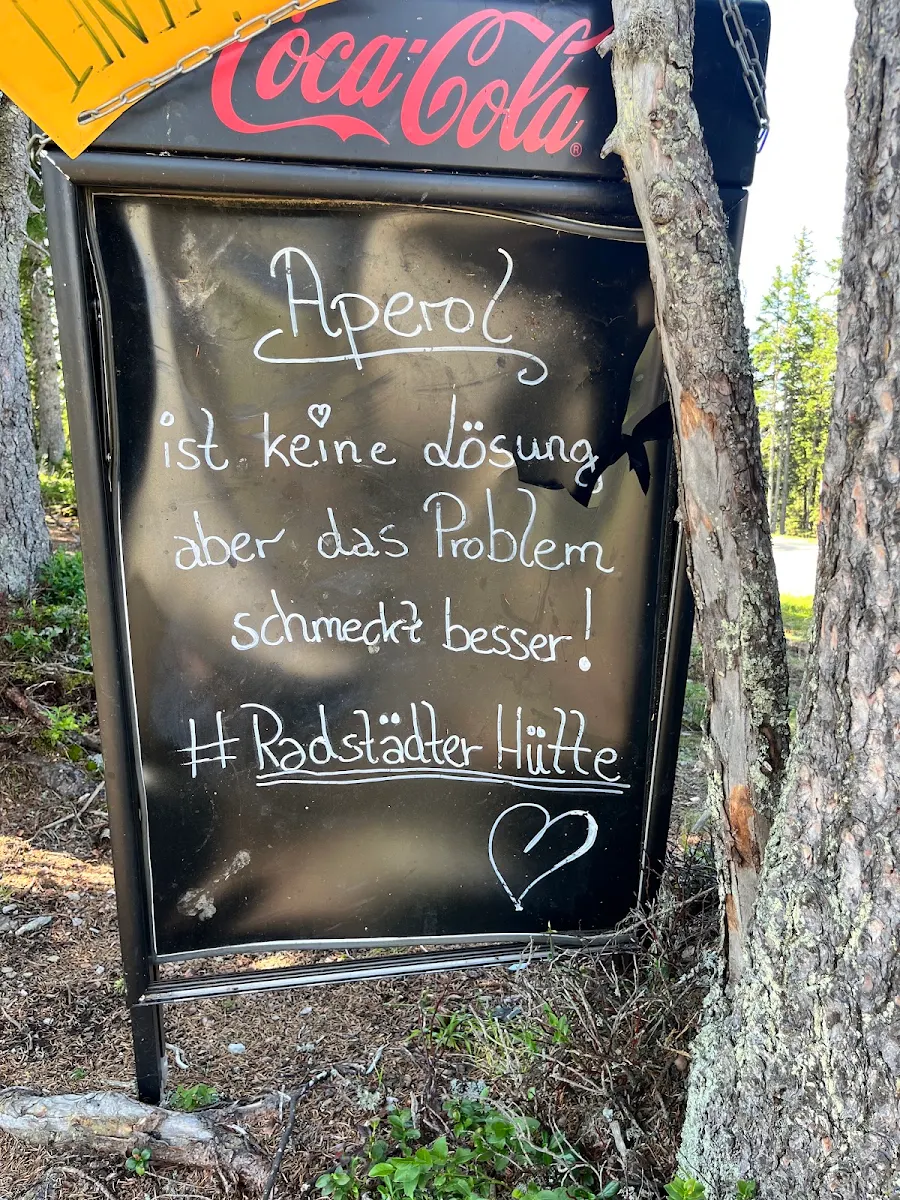 Coca-Cola
Aperol
ist keine Lösung,
aber das Problem
schmeckt besser!
#Radstädter Hütte